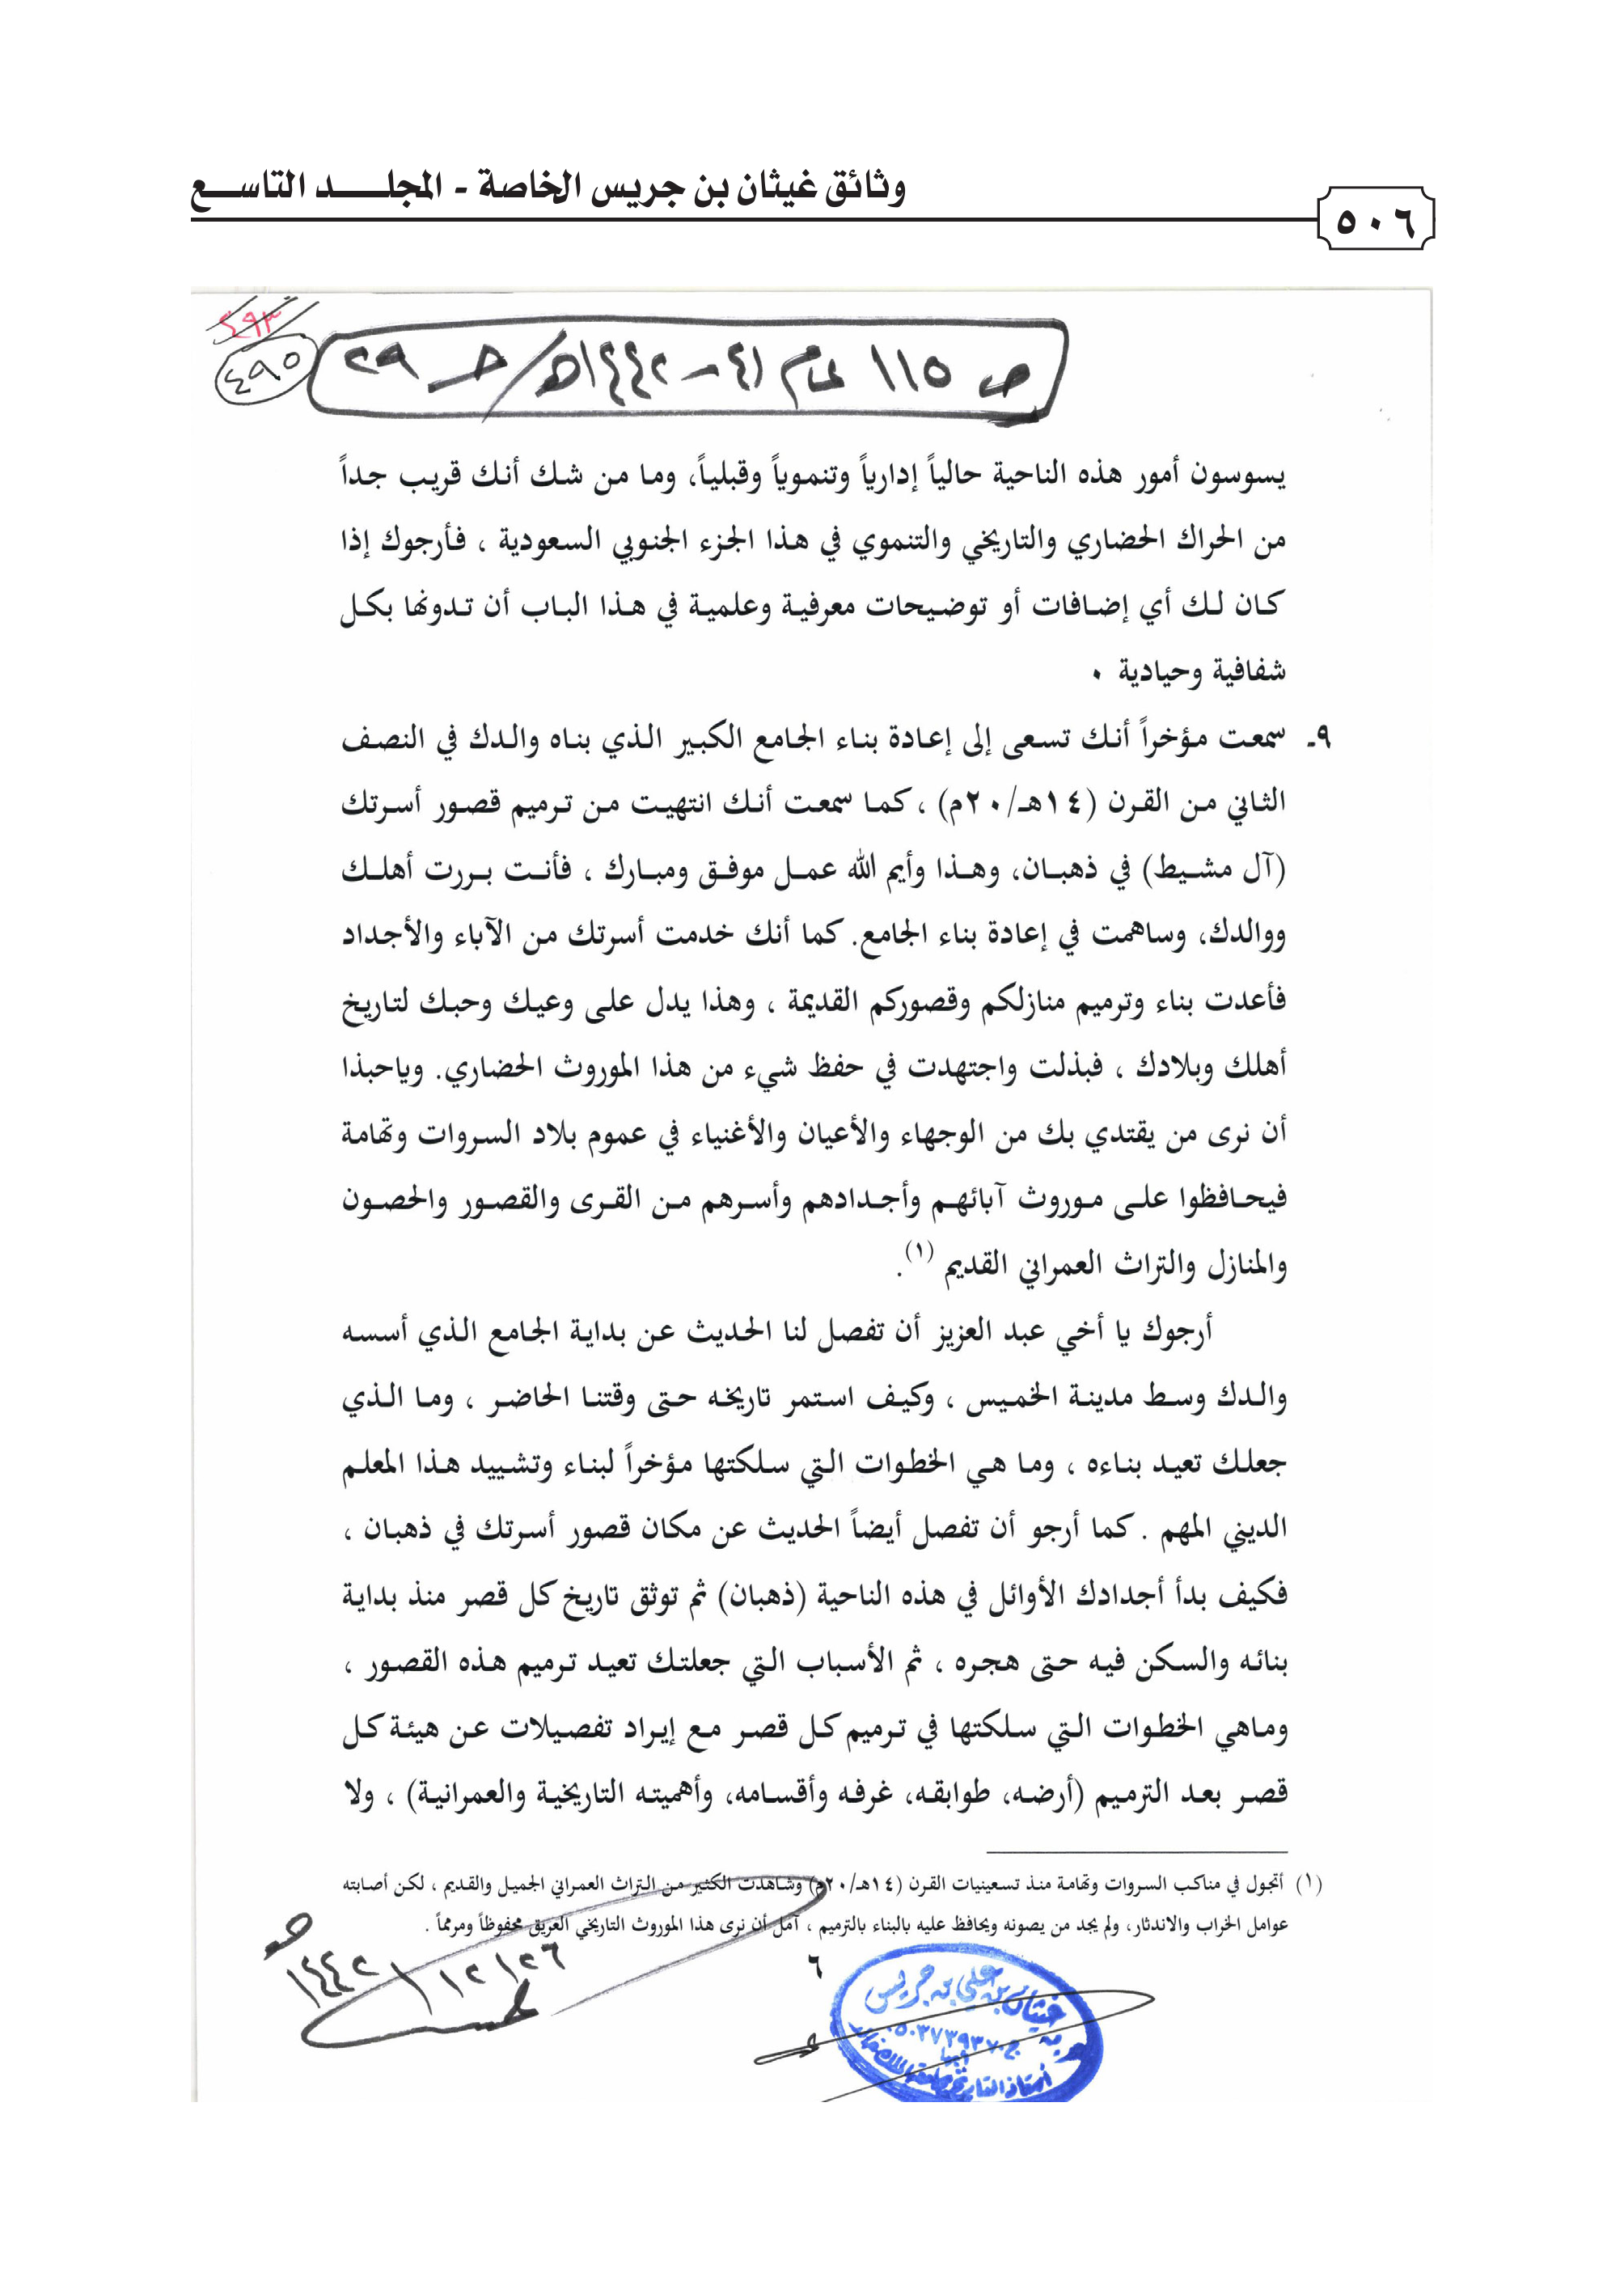 وثائق غيثان بن جريس الخاصة - المجلـــــد التاســـع
٥٠٦
٤٩٣
٤٩٥
ص ١١٥ عام ٤١ – ١٤٤٢هـ / حـ ٢٩
يسوسون أمور هذه الناحية حالياً إدارياً وتنموياً وقبلياً، وما من شك أنك قريب جداً
من الحراك الحضاري والتاريخي والتنموي في هذا الجزء الجنوبي السعودية ، فأرجوك إذا
كان لك أي إضافات أو توضيحات معرفية وعلمية في هذا الباب أن تدونها بكل
شفافية وحيادية ٠
٩ـ سمعت مؤخراً أنك تسعى إلى إعادة بناء الجامع الكبير الذي بناه والدك في النصف
الثاني من القرن (١٤هـ/٢٠م) ، كما سمعت أنك انتهيت من ترميم قصور أسرتك
(آل مشيط) في ذهبان، وهذا وأيم الله عمل موفق ومبارك ، فأنت بررت أهلك
ووالدك، وساهمت في إعادة بناء الجامع. كما أنك خدمت أسرتك من الآباء والأجداد
فأعدت بناء وترميم منازلكم وقصوركم القديمة ، وهذا يدل على وعيك وحبك لتاريخ
أهلك وبلادك ، فبذلت واجتهدت في حفظ شيء من هذا الموروث الحضاري. وياحبذا
أن نرى من يقتدي بك من الوجهاء والأعيان والأغنياء في عموم بلاد السروات وتهامة
فيحافظوا على موروث آبائهم وأجدادهم وأسرهم من القرى والقصور والحصون
والمنازل والتراث العمراني القديم (١).
أرجوك يا أخي عبد العزيز أن تفصل لنا الحديث عن بداية الجامع الذي أسسه
والدك وسط مدينة الخميس ، وكيف استمر تاريخه حتى وقتنا الحاضر ، وما الذي
جعلك تعيد بناءه ، وما هي الخطوات التي سلكتها مؤخراً لبناء وتشييد هذا المعلم
الديني المهم . كما أرجو أن تفصل أيضاً الحديث عن مكان قصور أسرتك في ذهبان ،
فكيف بدأ أجدادك الأوائل في هذه الناحية (ذهبان) ثم توثق تاريخ كل قصر منذ بداية
بنائه والسكن فيه حتى هجره ، ثم الأسباب التي جعلتك تعيد ترميم هذه القصور ،
وماهي الخطوات التي سلكتها في ترميم كل قصر مع إيراد تفصيلات عن هيئة كل
قصر بعد الترميم (أرضه، طوابقه، غرفه وأقسامه، وأهميته التاريخية والعمرانية) ، ولا
(١) أتجول في مناكب السروات وتهامة منذ تسعينيات القرن (١٤هـ/٢٠م) وشاهدت الكثير من التراث العمراني الجميل والقديم ، لكن أصابته
عوامل الخراب والاندثار، ولم يجد من يصونه ويحافظ عليه بالبناء بالترميم ، آمل أن نرى هذا الموروث التاريخي العريق محفوظاً ومرمماً .
٦
٢٦ / ١٢ / ١٤٤٢هـ
غيثان بن علي بن جريس
ج ٠٥٠٣٧٣٩٣٧٠
أبها